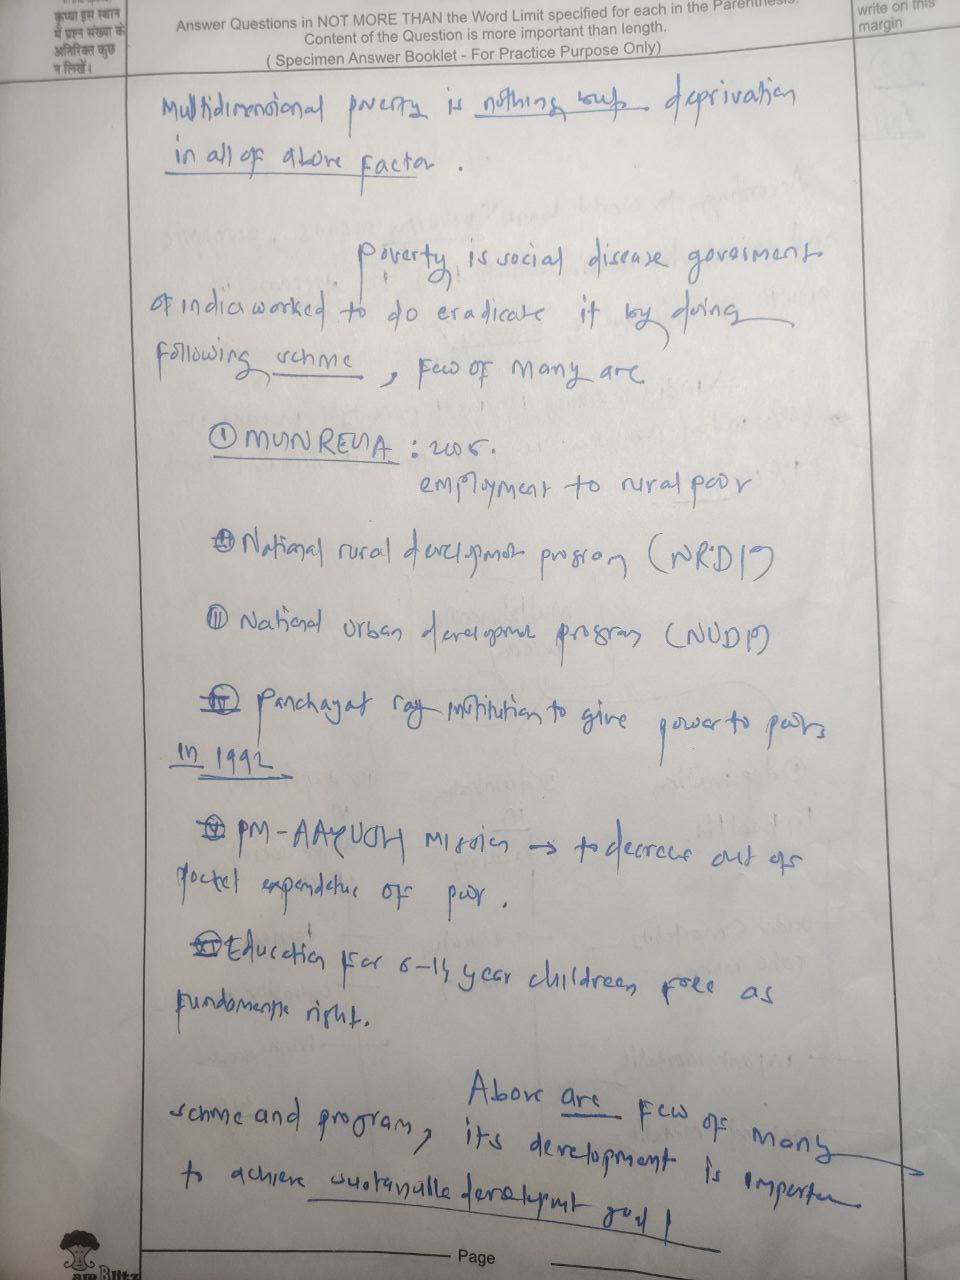 कृप्या इस स्थान
में प्रश्न संख्या के
अतिरिक्त कुछ
न लिखें।
Answer Questions in NOT MORE THAN the Word Limit specified for each in the Parenthesis.
Content of the Question is more important than length.
( Specimen Answer Booklet - For Practice Purpose Only)
write on this
margin
Multidimensional poverty is nothing but deprivation
in all of above Factor .
Poverty is social disease goverment
of india worked to do eradicate it by doing
Following schme , Few OF Many are
① MGNREGA : 2005.
employment to rural poor
National rural development program (NRDP)
② National urban development program (NUDP)
Panchayat raj institution to give power to poors
in 1992
PM-AAYUSH Mission → to decrease out of
pocket expendetue OF poor .
Education For 6-14 year childreen free as
Fundamente right.
Above are Few of many
schme and program, its development is importen
to achieve sustanable development goal !
Page